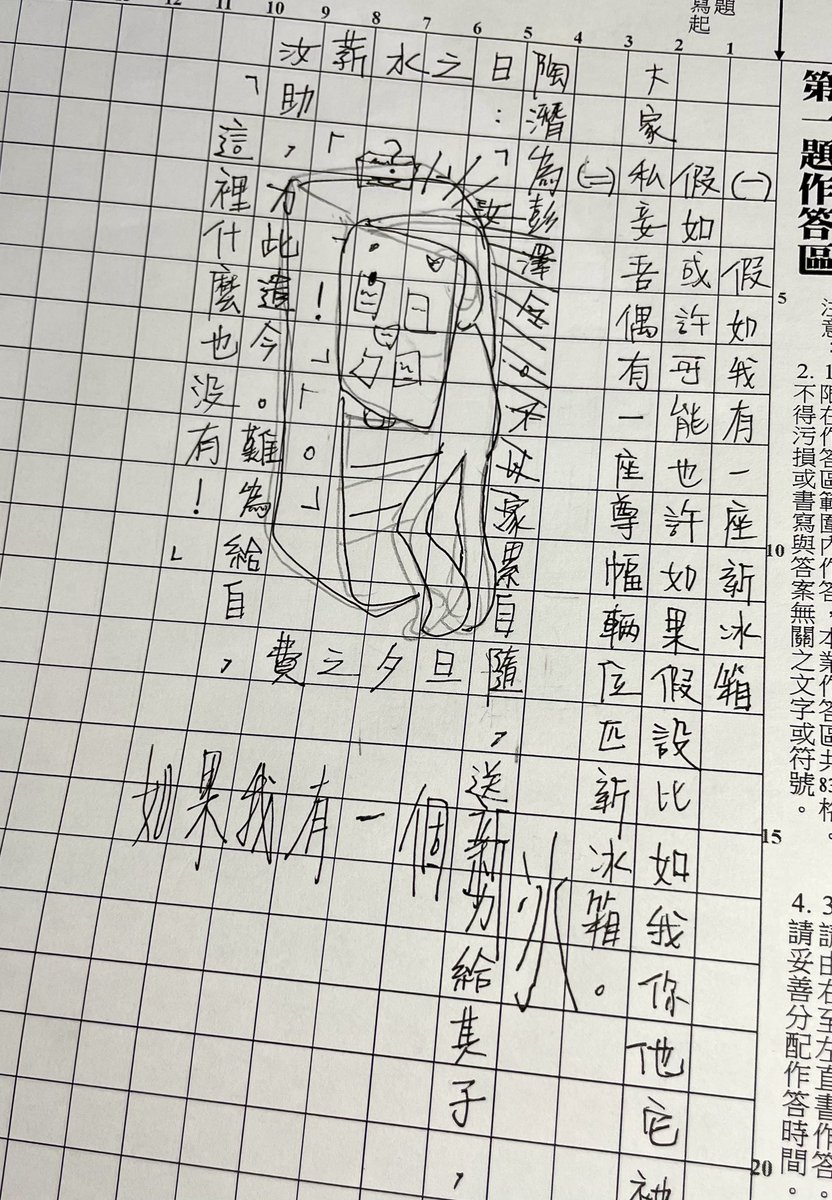 題
寫起
第一題作答區
注意：
1. 限在作答區範圍內作答，本業作答區共83格。
2. 不得污損或書寫與答案無關之文字或符號。
3. 請由右至左直書作答
4. 請妥善分配作答時間。
1 2 3 4 5 6 7 8 9 10 11 12
5
10
15
20
(一)假如我有一座新冰箱
假如或許可能也許如果假設比如我你他它祂
大家私妾吾偶有一座尊幅輛位匹新冰箱。
(二)
陶潛為彭澤令。不以家累自隨，送新力給其子，
日：「汝
旦夕之費，
自給為難。今遣此力，助
汝薪水之
「這裡什麼也沒有！」
如果我有一個冰